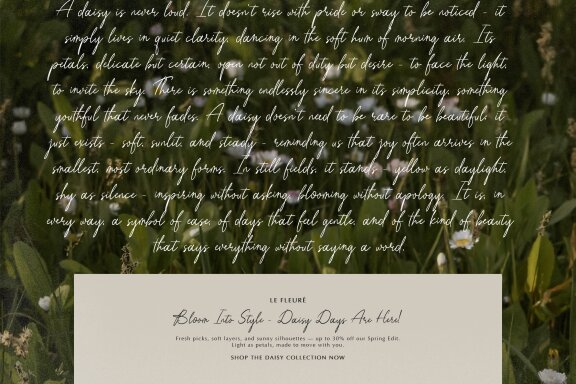 A daisy is never loud. It doesn't rise with pride or sway to be noticed - it
simply lives in quiet clarity, dancing in the soft hum of morning air. Its
petals, delicate but certain, open not out of duty but desire - to face the light,
to invite the sky. There is something endlessly sincere in its simplicity, something
youthful that never fades. A daisy doesn't need to be rare to be beautiful; it
just exists - soft, sunlit, and steady - reminding us that joy often arrives in the
smallest, most ordinary forms. In still fields, it stands - yellow as daylight,
shy as silence - inspiring without asking, blooming without apology. It is, in
every way, a symbol of ease, of days that feel gentle, and of the kind of beauty
that says everything without saying a word.
LE FLEURÉ
Bloom Into Style - Daisy Days Are Here!
Fresh picks, soft layers, and sunny silhouettes — up to 30% off our Spring Edit.
Light as petals, made to move with you.
SHOP THE DAISY COLLECTION NOW